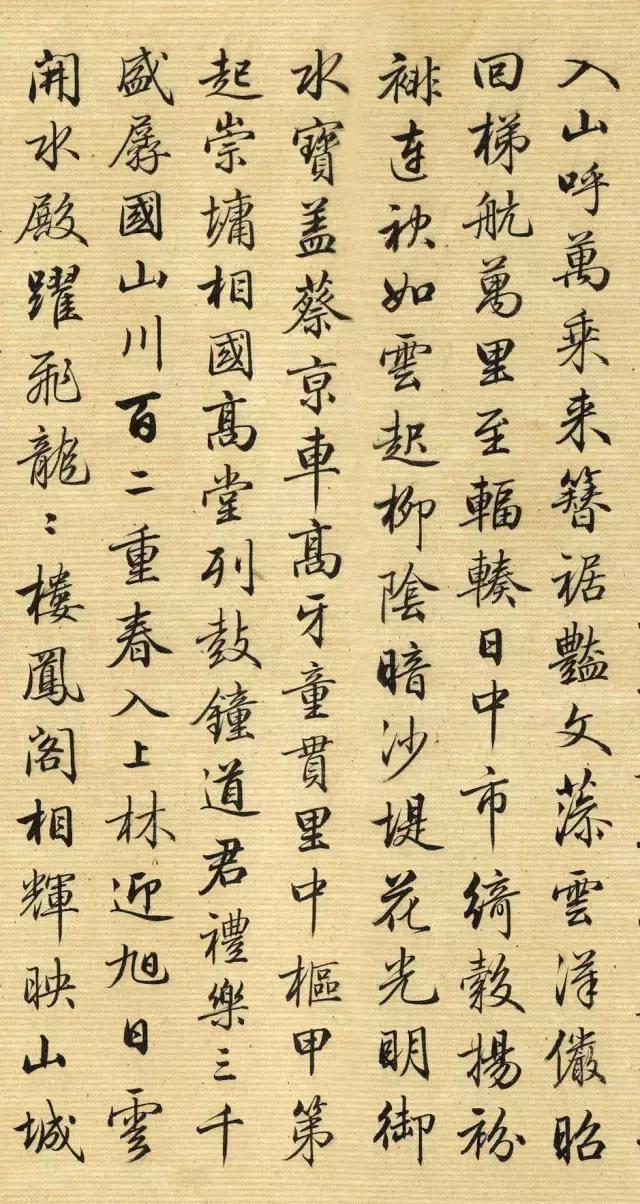 入山呼萬乘来簪裾豔文藻雲漢儼昭
回梯航萬里至輻輳日中市綺縠揚衯
裶連袂如雲起柳陰暗沙堤花光明御
水寶盖蔡京車髙牙童貫里中樞甲第
起崇墉相國髙堂列鼓鐘道君禮樂三千
盛孱國山川百二重春入上林迎旭日雲
開水殿躍飛龍〻樓鳳閣相輝映山城